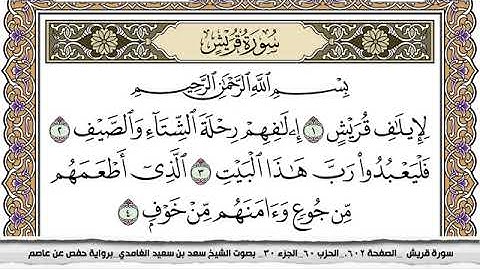 سُورَةُ قُرَيْشٍ
بِسْمِ اللَّهِ الرَّحْمَٰنِ الرَّحِيمِ
لِإِيلَٰفِ قُرَيْشٍ ١ إِۦلَٰفِهِمْ رِحْلَةَ ٱلشِّتَآءِ وَٱلصَّيْفِ ٢
فَلْيَعْبُدُوا۟ رَبَّ هَٰذَا ٱلْبَيْتِ ٣ ٱلَّذِىٓ أَطْعَمَهُم
مِّن جُوعٍ وَءَامَنَهُم مِّنْ خَوْفٍۭ ٤
سورة قريش _الصفحة ٦٠٢_ الحزب ٦٠_ الجزء ٣٠_ بصوت الشيخ سعد بن سعيد الغامدي _برواية حفص عن عاصم